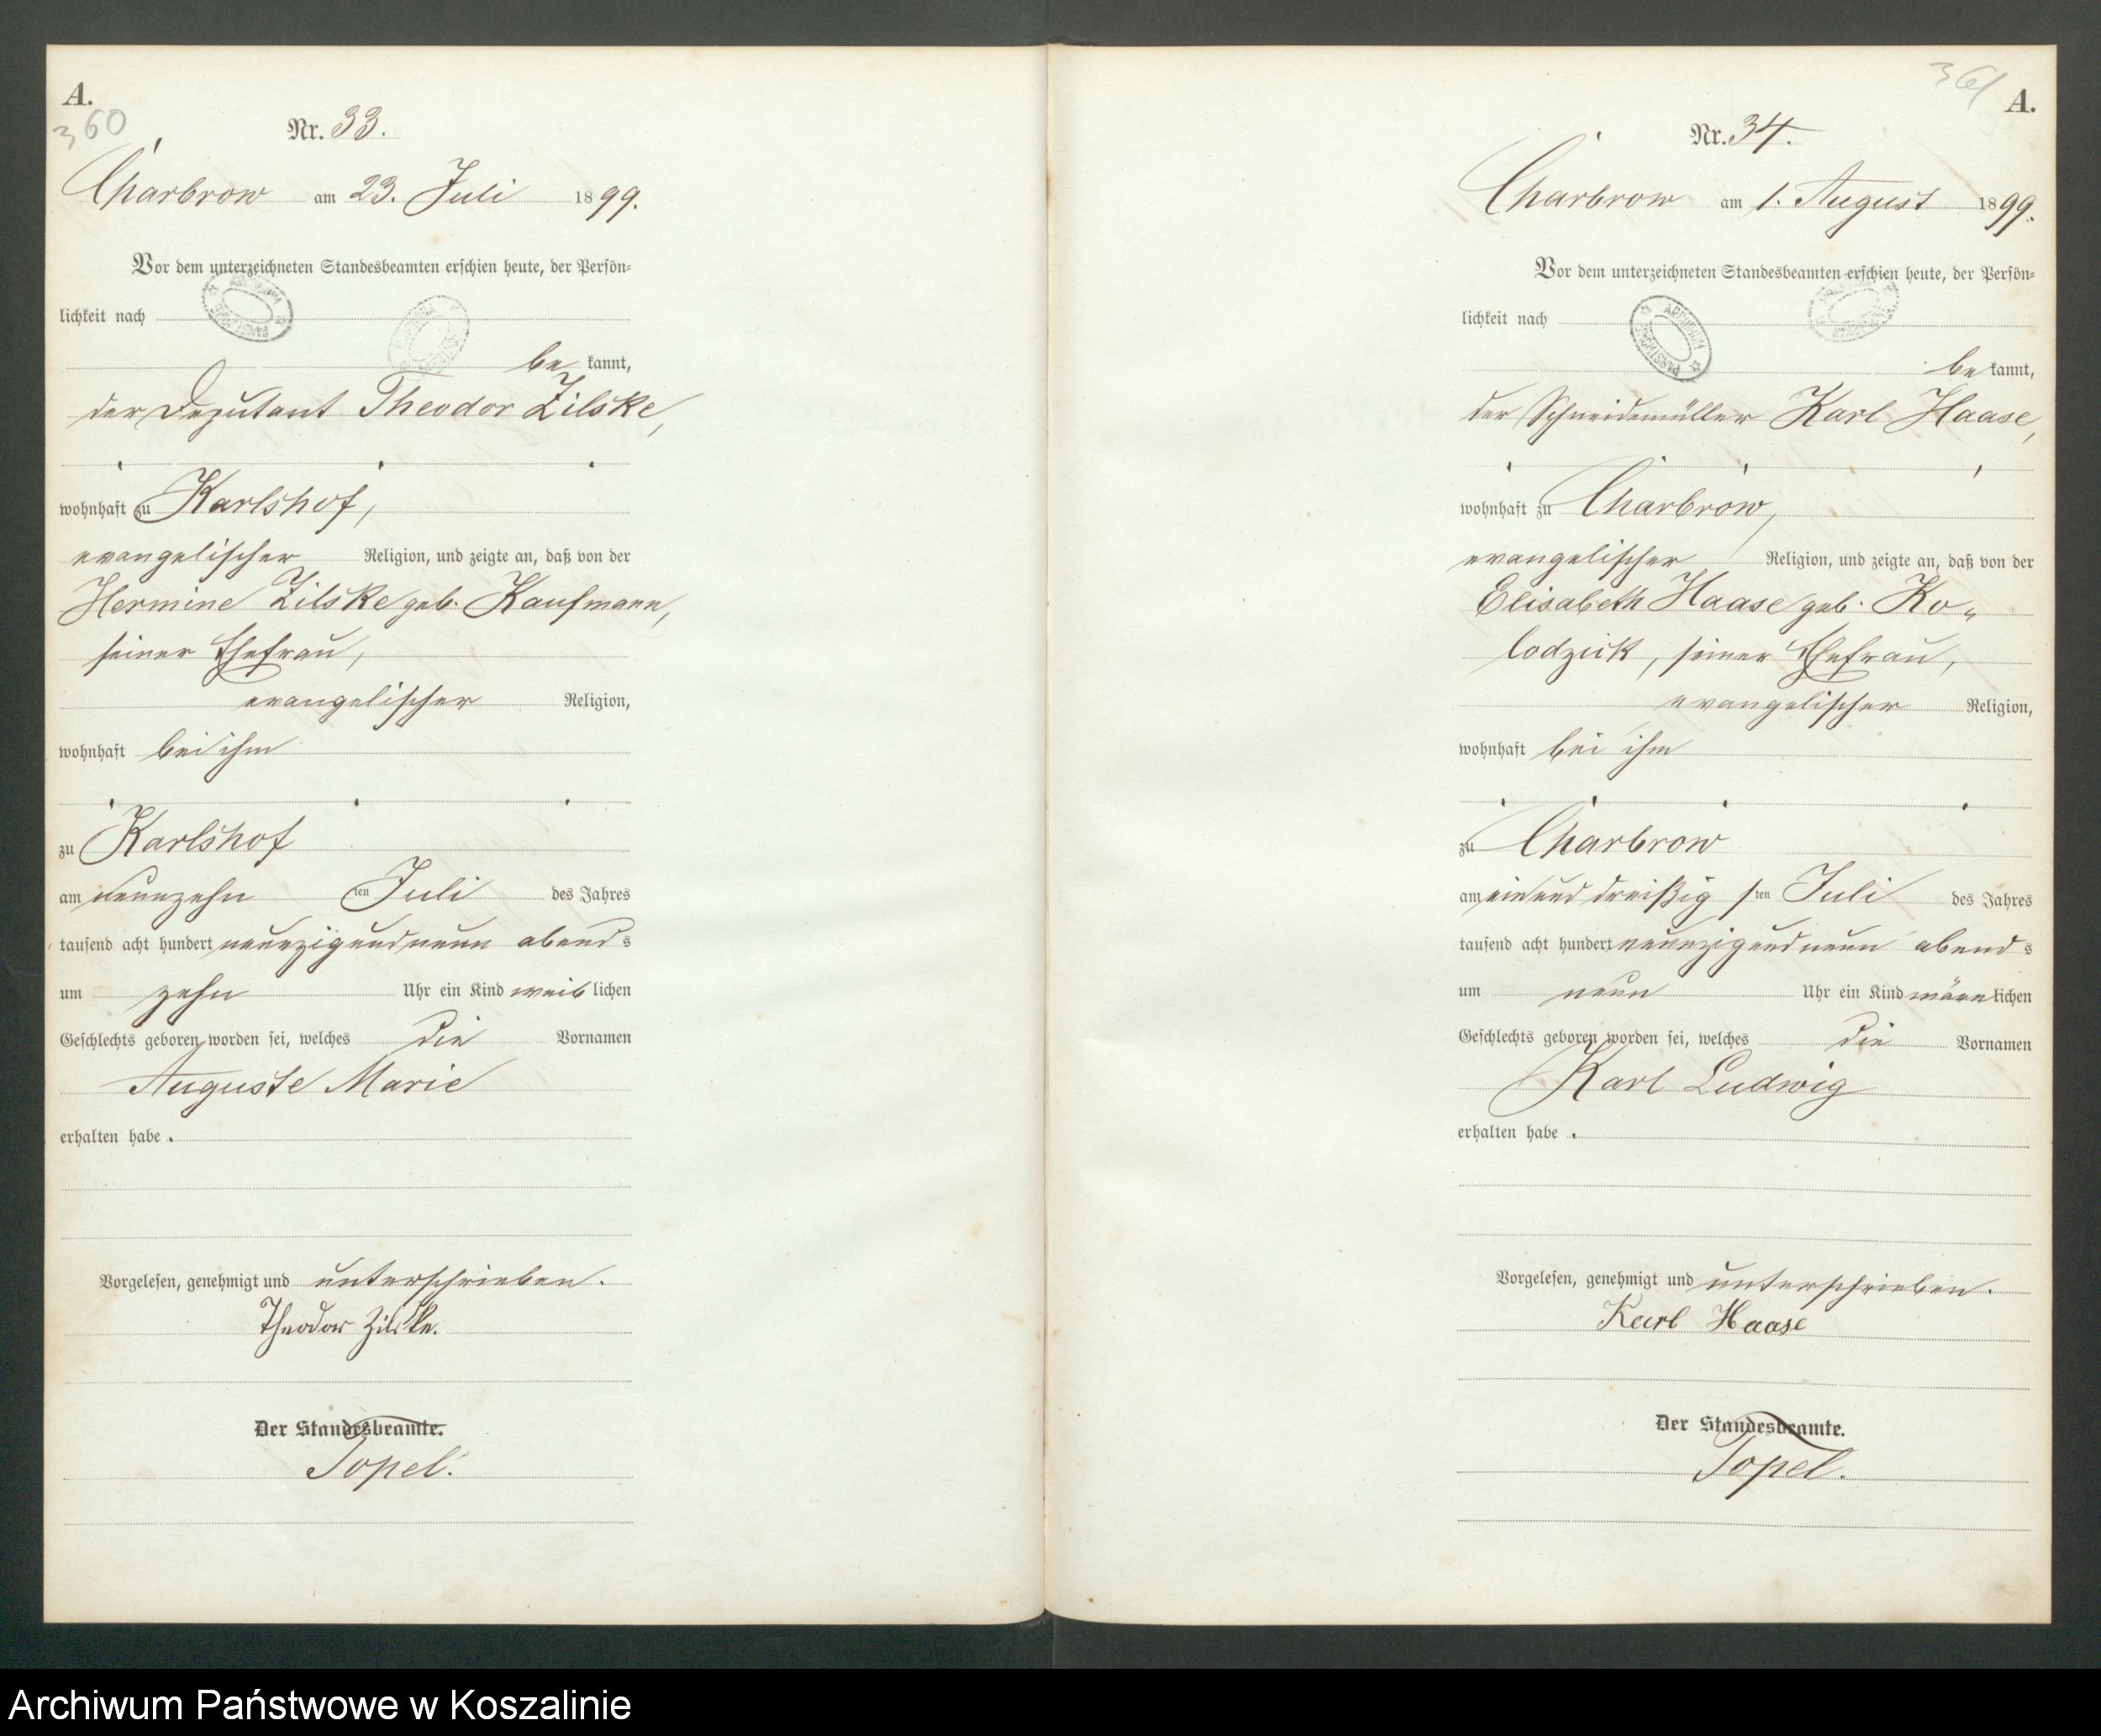 A.
360
Nr. 33.
Charbrow am 23. Juli 1899.
Vor dem unterzeichneten Standesbeamten erschien heute, der Persön-
lichkeit nach
be kannt,
der Deputant Theodor Zilske,
wohnhaft zu Karlshof,
evangelischer Religion, und zeigte an, daß von der
Hermine Zilske geb. Kaufmann,
seiner Ehefrau,
evangelischer Religion,
wohnhaft bei ihm
zu Karlshof
am neunzehn ten Juli des Jahres
tausend acht hundert neunzig und neun abends
um zehn Uhr ein Kind weiblichen
Geschlechts geboren worden sei, welches die Vornamen
Auguste Marie
erhalten habe.
Vorgelesen, genehmigt und unterschrieben.
Theodor Zilske.
Der Standesbeamte.
Topel.
361
A.
Nr. 34.
Charbrow am 1. August 1899.
Vor dem unterzeichneten Standesbeamten erschien heute, der Persön-
lichkeit nach
be kannt,
der Schneidemüller Karl Haase,
wohnhaft zu Charbrow,
evangelischer Religion, und zeigte an, daß von der
Elisabeth Haase geb. Ko-
lodzick, seiner Ehefrau,
evangelischer Religion,
wohnhaft bei ihm
zu Charbrow
am einund dreißig sten Juli des Jahres
tausend acht hundert neunzig und neun abends
um neun Uhr ein Kind männlichen
Geschlechts geboren worden sei, welches die Vornamen
Karl Ludwig
erhalten habe.
Vorgelesen, genehmigt und unterschrieben.
Karl Haase
Der Standesbeamte.
Topel.
Archiwum Państwowe w Koszalinie